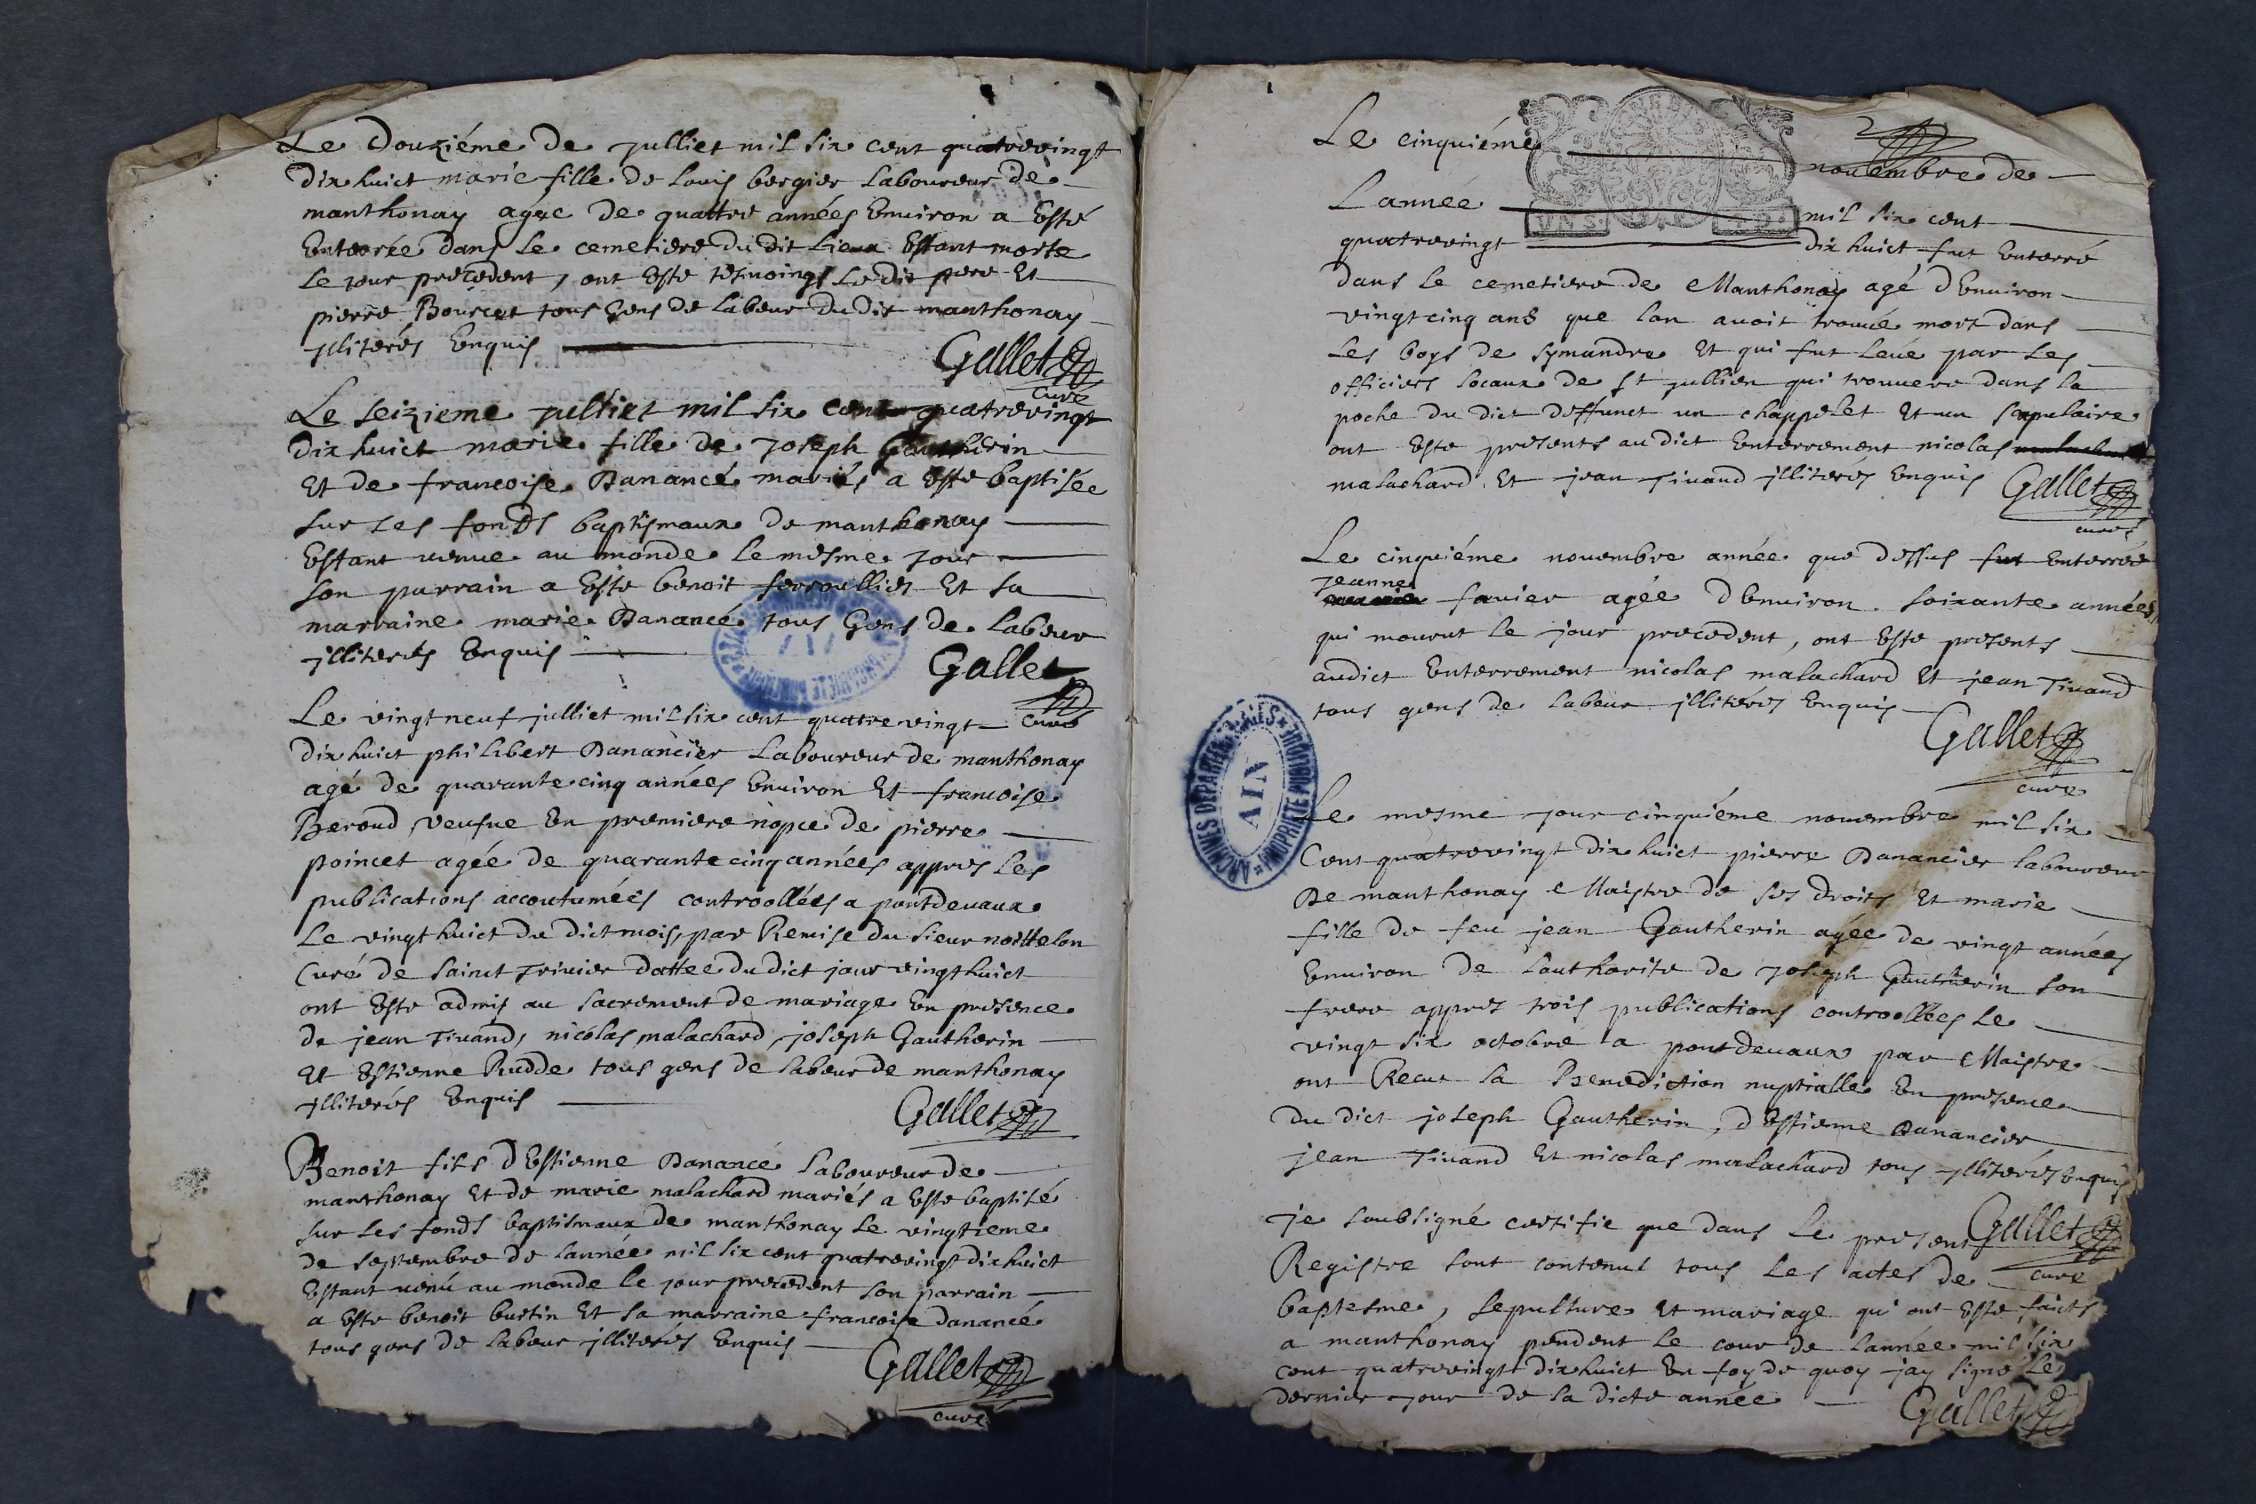 Le Douziéme de julliet mil six cent quatrevingt
dix huict marie fille de Louis bergier Laboureur de
manthonay agée de quattre années Environ a Esté
Enterrée dans Le cemetiere du dit Lieux Estant morte
Le jour precedent, ont Este tesmoings Ledit pere Et
pierre Bourcet tous Gens de Labeur du dit manthonay
jlliterés Enquis
Gallet
curé
Le seizieme julliet mil six cent quatrevingt
dix huict marie fille de Joseph Gautherin
Et de francoise Danancé mariés a Este baptisée
sur Les fonds baptismaux de manthonay
Estant venue au monde le mesme jour
son parrain a Este benoit ferroullier Et sa
marraine marie Danancé tous Gens de Labeur
jlliterés Enquis
Gallet
curé
Le vingt neuf julliet mil six cent quatrevingt
dix huict philibert Danancier Laboureur de manthonay
agé de quarante cinq années Environ Et francoise
Beroud veufue En premiere nopce de pierre
poincet agée de quarante cinq années appres les
publications accoutumées controollées a pontdevaux
Le vingt huict du dict mois, par Remise du sieur noittelon
Curé de sainct Trivier dattee du dict jour vingt huict
ont Este admis au sacrement de mariage En presence
de jean Tivand, nicolas malachard, joseph Gautherin
Et Estienne Rudde tous gens de Labeur de manthonay
jlliterés Enquis
Gallet
Benoit fils d'Estienne Danancé Laboureur de
manthonay Et de marie malachard mariés a Este baptisé
sur Les fonds baptismaux de manthonay Le vingtieme
de septembre de Lannée mil six cent quatrevingt dix huict
Estant venú au monde le jour precedent son parrain
a Este benoit bustin Et sa marraine francoise danancé
tous gens de Labeur jlliterés Enquis
Gallet
curé
Le cinquiéme novembre de
Lannee mil six cent
quatrevingt dix huict fut Enterré
dans le cemetiere de Manthonay agé d Environ
vingt cinq ans que lon avoit trouvé mort dans
Les boys de symandre Et qui fut Levé par Les
officiers Locaux de st jullien qui trouvere dans la
poche du dict deffunct un chappelet Et un scapulaire
ont Este presents audict Enterrement nicolas
malachard Et jean Tivand jlliterés Enquis
Gallet
curé
Le cinquiéme novembre année que dessus fut Enterrée
jeanne
favier agée d Environ soixante années
qui mourut le jour precedent, ont Este presents
audict Enterrement nicolas malachard Et jean Tivand
tous gens de Labeur jlliterés Enquis
Gallet
curé
ARCHIVES DÉPARTEMENTALES
AIN
PROPRIÉTÉ PUBLIQUE
Le mesme jour cinquiéme novembre mil six
Cent quatrevingt dix huict pierre Danancier laboureur
De manthonay Maistre de ses droits Et marie
fille de feu jean Gautherin agée de vingt années
Environ de Lauthorite de Joseph Gautherin son
frere appres trois publications controollées Le
vingt six octobre a pont devaux par Maistre
ont Recut La Benediction nuptialle En presence
Du dict joseph Gautherin, d Estienne Danancier
jean Tivand Et nicolas malachard tous jlliterés Enquis
Gallet
curé
je soubsigné certifie que dans Le present
Registre sont contenus tous Les actes de
baptesme, sepulture Et mariage qui ont Este faicts
a manthonay pendent Le cour de Lannée mil six
cent quatrevingt dix huict En foy de quoy jay signé Le
dernier jour de La dicte année
Gallet